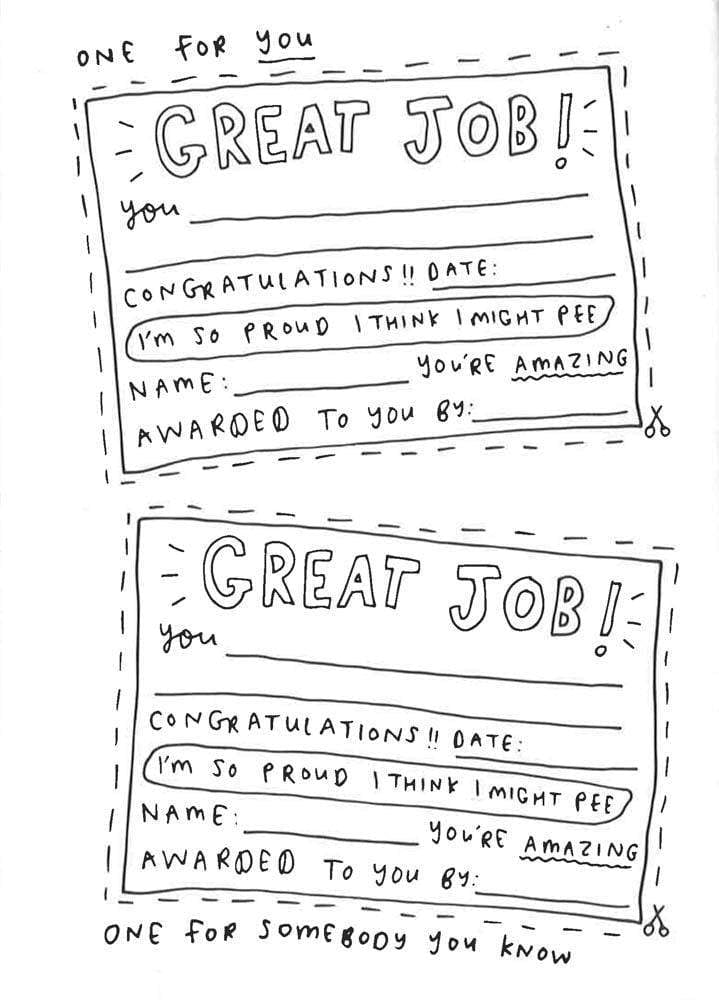 ONE FOR YOU
GREAT JOB!
you
CONGRATULATIONS!! DATE:
I'M SO PROUD I THINK I MIGHT PEE
NAME: YOU'RE AMAZING
AWARDED TO YOU BY:
GREAT JOB!
you
CONGRATULATIONS!! DATE:
I'M SO PROUD I THINK I MIGHT PEE
NAME: YOU'RE AMAZING
AWARDED TO YOU BY:
ONE FOR SOMEBODY YOU KNOW